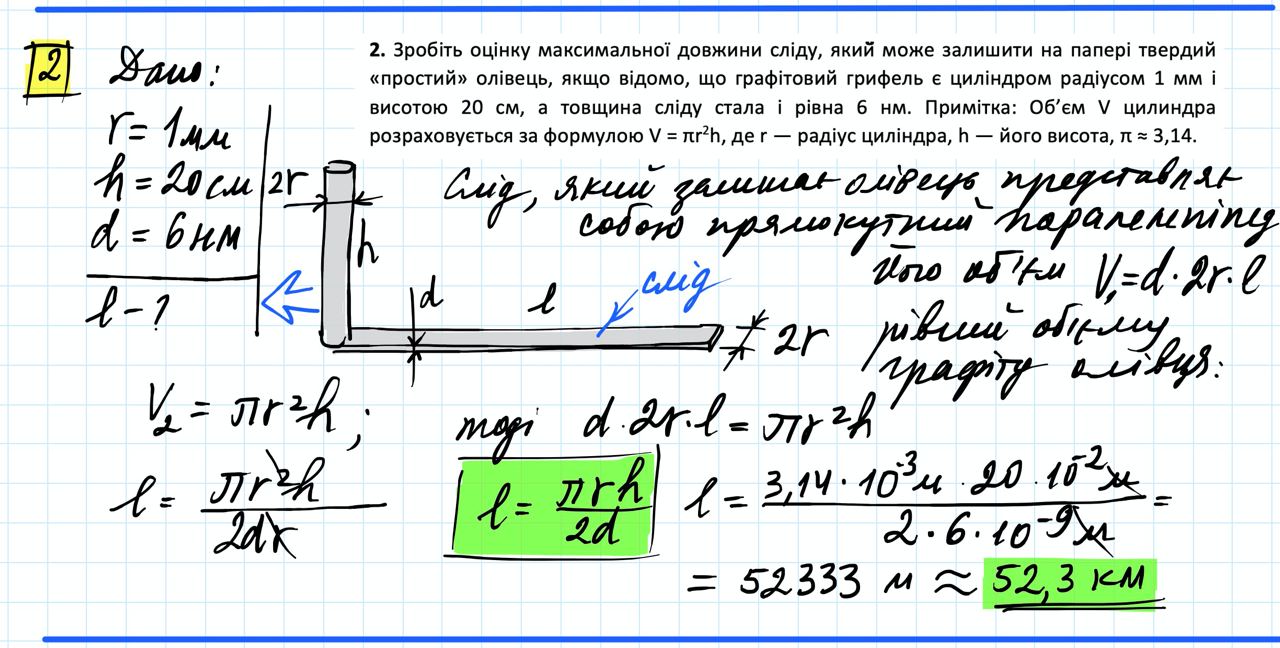 2
Дано:
r = 1мм
h = 20см
d = 6нм
l - ?
2. Зробіть оцінку максимальної довжини сліду, який може залишити на папері твердий
«простий» олівець, якщо відомо, що графітовий грифель є циліндром радіусом 1 мм і
висотою 20 см, а товщина сліду стала і рівна 6 нм. Примітка: Об’єм V цилиндра
розраховується за формулою V = πr²h, де r — радіус циліндра, h — його висота, π ≈ 3,14.
2r
h
d
l
слід
2r
Слід, який залишає олівець представляє
собою прямокутний паралелепіпед
його об'єм V₁ = d·2r·l
рівний об'єму
графіту олівця:
V₂ = πr²h;
тоді d·2r·l = πr²h
l = πr²h / 2dr
l = πrh / 2d
l = 3,14·10⁻³м·20·10⁻²м / 2·6·10⁻⁹м =
= 52333 м ≈ 52,3 км